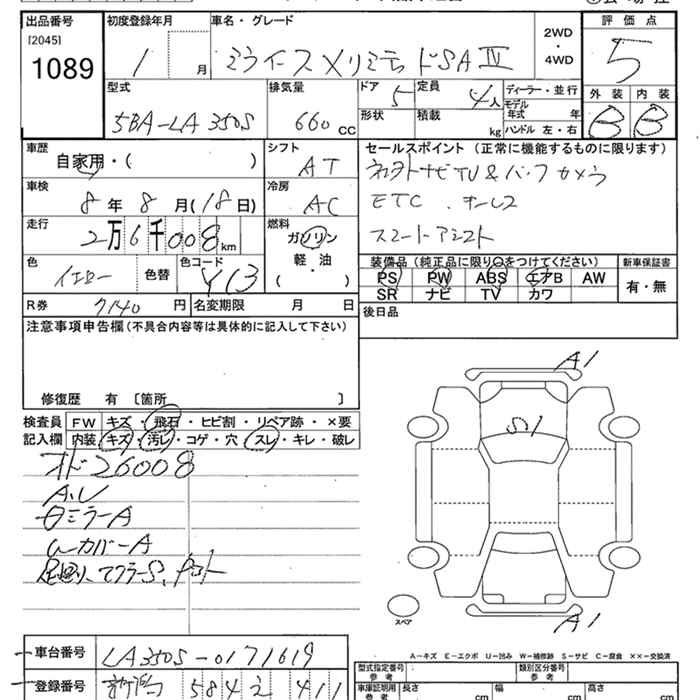 出品番号 初度登録年月 車名・グレード 2WD・4WD 評価点
[2045]
1089 1 月 ミライース Xリミテッド SA Ⅳ 5
型式 排気量 ドア 定員 ディーラー・並行 外装 内装
5BA-LA350S 660 CC 5 4人 モデル年式 年 B B
形状 積載 kg ハンドル 左・右
車歴 シフト セールスポイント (正常に機能するものに限ります)
自家用・( ) AT 社外ナビTV & バックカメラ
車検 冷房 ETC、キーレス
8年 8月(18日) AC スマートアシスト
走行 燃料
2万6千008km ガソリン
軽・油
( )
装備品 (純正品に限り○をつけてください) 新車保証書
色 イエロー 色替 色コード Y13
PS PW ABS エアB AW 有・無
SR ナビ TV カワ
R券 7140 円 名変期限 月 日 後日品
注意事項申告欄 (不具合内容等は具体的に記入して下さい)
修復歴 有 〔箇所 〕
検査員 FW キズ・飛石・ヒビ割・リペア跡・×要
記入欄 内装 キズ・汚レ・コゲ・穴・スレ・キレ・破レ
オド 26008
A.U
ミラーA
カバーA
足廻り、マフラーS、
A1
S1
A1
スペア
A-キズ E-エクボ U-凹み W-補修跡 S-サビ C-腐食 ××-交換済
車台番号 LA350S-0171619
登録番号 584 411
型式指定番号 参考 類別区分番号 参考
車庫証明用 参考 長さ cm 幅 cm 高さ cm